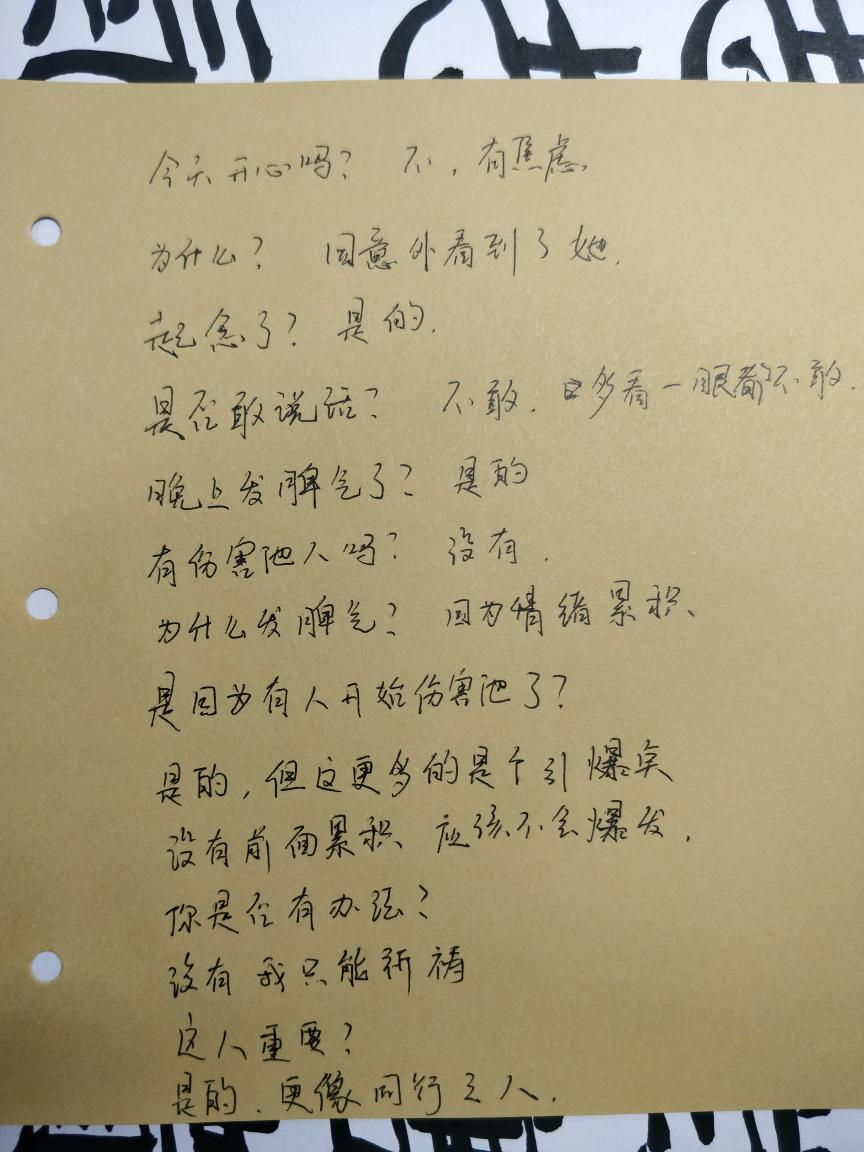 今天开心吗？ 不，有焦虑、
为什么？ 因意外看到了她．
起念了？ 是的．
是否敢说话？ 不敢．多看一眼都不敢．
晚上发脾气了？ 是的
有伤害他人吗？ 没有．
为什么发脾气？ 因为情绪累积、
是因为有人开始伤害他了？
是的，但这更多的是个引爆点
没有前面累积、应该不会爆发．
你是否有办法？
没有 我只能祈祷
这人重要？
是的．更像同行之人．